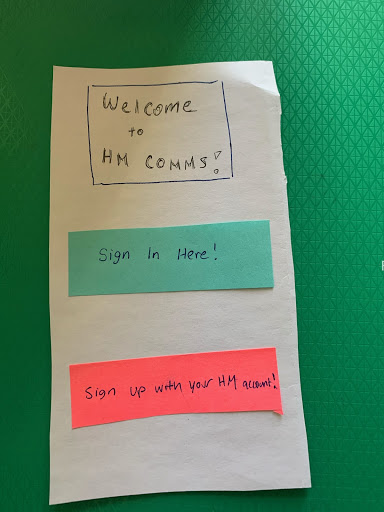 Welcome
to
HM COMMS!
Sign In Here!
Sign up with your HM account!